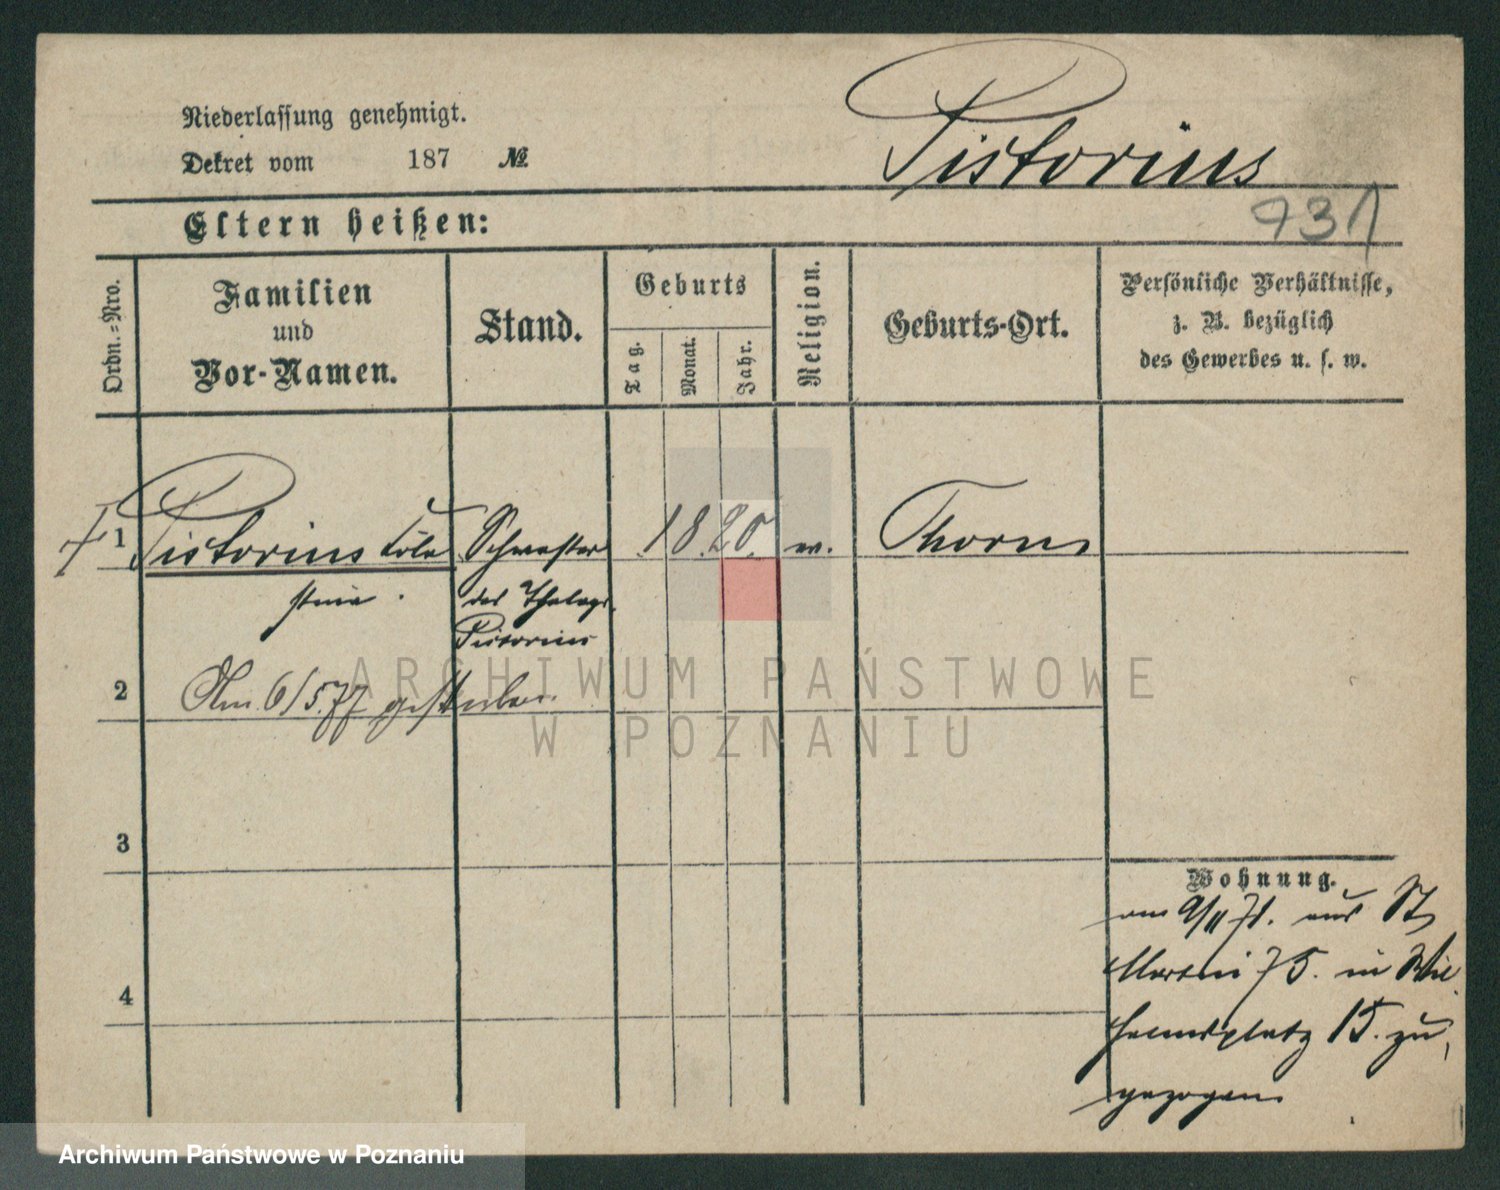 Niederlassung genehmigt.
Dekret vom 187 №
Pistorius
931
Eltern heißen:
Ordn.-Nro.
Familien
und
Vor-Namen.
Stand.
Geburts
Tag.
Monat.
Jahr.
Religion.
Geburts-Ort.
Persönliche Verhältnisse,
z. B. bezüglich
des Gewerbes u. s. w.
1 Pistorius Cöle Schwester 1820. ev. Thorn
stine. des
Pistorius
2 Am 6/5.77 gestorben.
3
4
Wohnung.
am 9/11 71. aus St
Martin 75. in Wil
helmsplatz 15. zu
gezogen.
ARCHIWUM PAŃSTWOWE
W POZNANIU
Archiwum Państwowe w Poznaniu